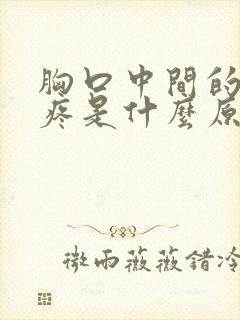 胸口中間的
疼是什麼原
微雨薇薇錯冷